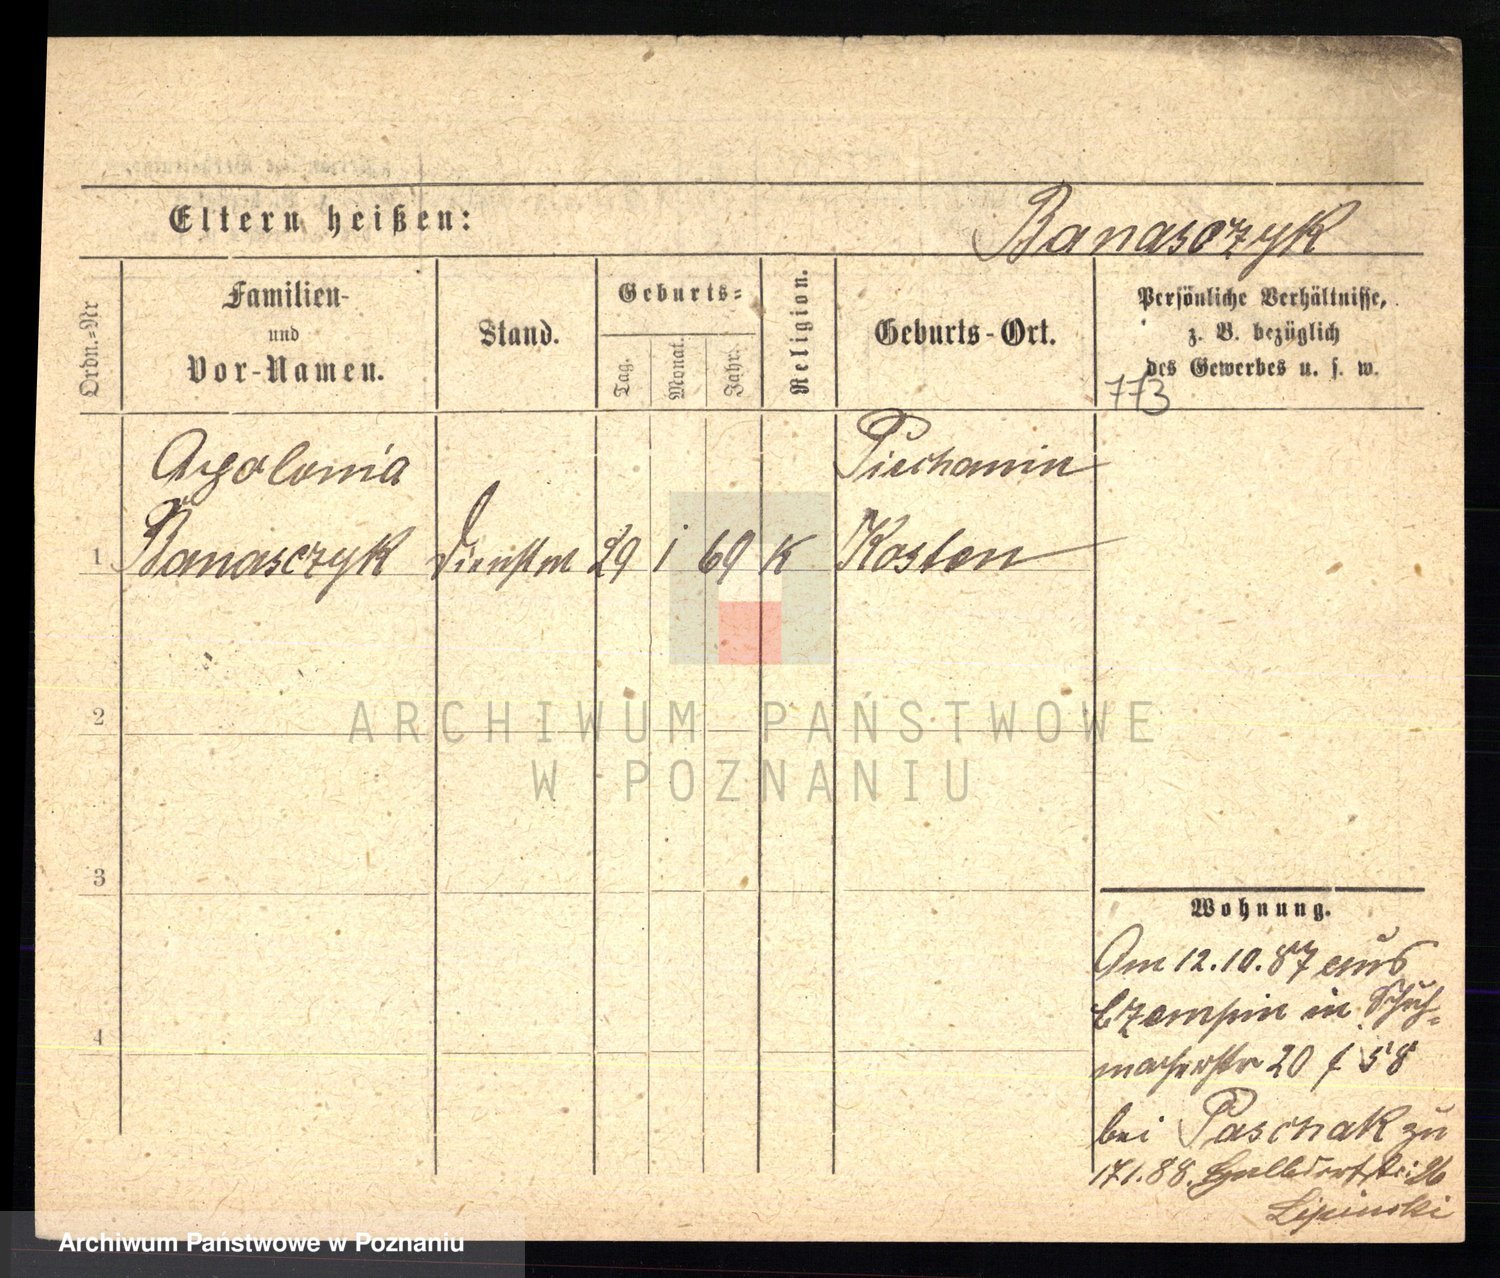 Eltern heißen:
Banasczyk
Ordn.-Nr
Familien-
und
Vor-Namen.
Stand.
Geburts-
Tag.
Monat.
Jahr.
Religion.
Geburts-Ort.
Persönliche Verhältnisse,
z. B. bezüglich
des Gewerbes u. s. w.
773
Apolonia
Piechanin
1 Banasczyk Dienstm 29 1 69 K Kosten
2
3
4
ARCHIWUM PAŃSTWOWE
W POZNANIU
Wohnung.
Am 12.10.87 aus
Czempin in Schuh-
macherstr 20 f 58
bei Paschak zu
17.1.88. Halbdorfstr: 26
Lipinski
Archiwum Państwowe w Poznaniu